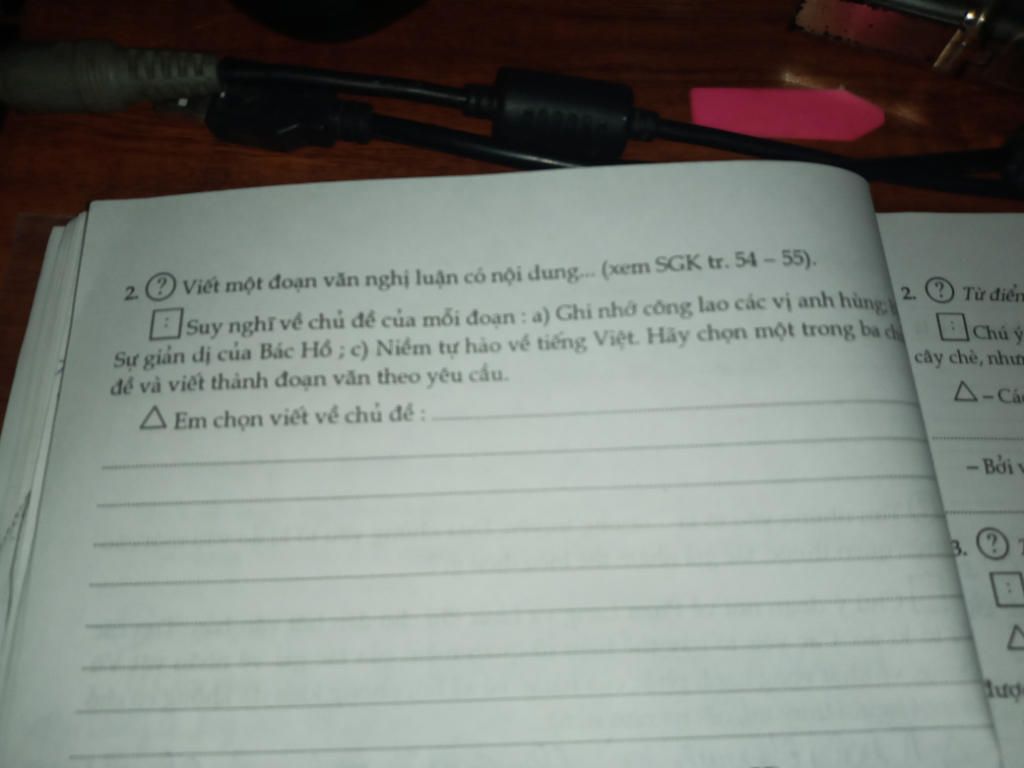 2. ? Viết một đoạn văn nghị luận có nội dung... (xem SGK tr. 54 – 55).
: Suy nghĩ về chủ đề của mỗi đoạn : a) Ghi nhớ công lao các vị anh hùng;
Sự giản dị của Bác Hồ ; c) Niềm tự hào về tiếng Việt. Hãy chọn một trong ba
đề và viết thành đoạn văn theo yêu cầu.
Em chọn viết về chủ đề :
2. ? Từ điển
: Chú ý
cây chè,
– Các
– Bởi
3. ?
: